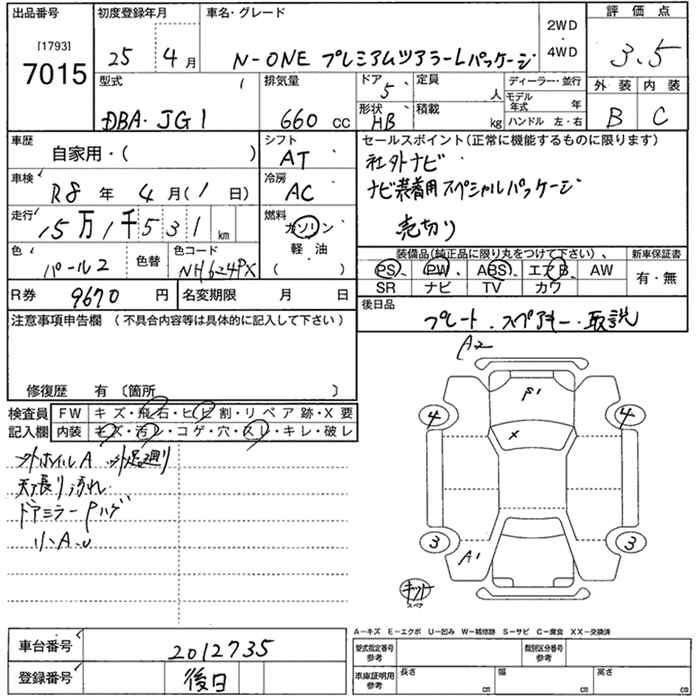 出品番号
[1793]
7015
初度登録年月
25 4月
車名・グレード
N-ONE プレミアムツアラーLパッケージ
2WD
4WD
評価点
3.5
外装 内装
B C
型式
DBA・JG1
排気量
660 CC
ドア
5
形状
HB
定員
人
積載
kg
ディーラー・並行
モデル年式 年
ハンドル 左・右
車歴
自家用・( )
シフト
AT
車検
R8年 4月(1日)
冷房
AC
走行
15万1千531km
燃料
ガソリン
軽・油
( )
色
パール2
色替
色コード
NH624PX
R券
9670円
名変期限 月 日
セールスポイント(正常に機能するものに限ります)
社外ナビ
ナビ装着用スペシャルパッケージ
売切り
装備品(純正品に限り丸をつけて下さい)、
PS、 PW、 ABS エアB、 AW
SR ナビ TV カワ
新車保証書
有・無
後日品
プレート、スペアキー・取説
注意事項申告欄(不具合内容等は具体的に記入して下さい)
修復歴 有〔箇所 〕
検査員
記入欄
FW キズ・飛石・ヒビ割・リペア跡・X要
内装 キズ・汚レ・コゲ・穴・スレ・キレ・破レ
外ホイルA 外足廻り
天張り汚れ
ドアミラーPハゲ
小A.U
A2
P1
X
4
4
3
3
A1
キット
スペア
A―キズ E―エクボ U―凹み W―補修跡 S―サビ C―腐食 XX―交換済
車台番号
2012735
登録番号
後日
型式指定番号
参考
類別区分番号
参考
車庫証明用
参考
長さ cm
幅 cm
高さ cm